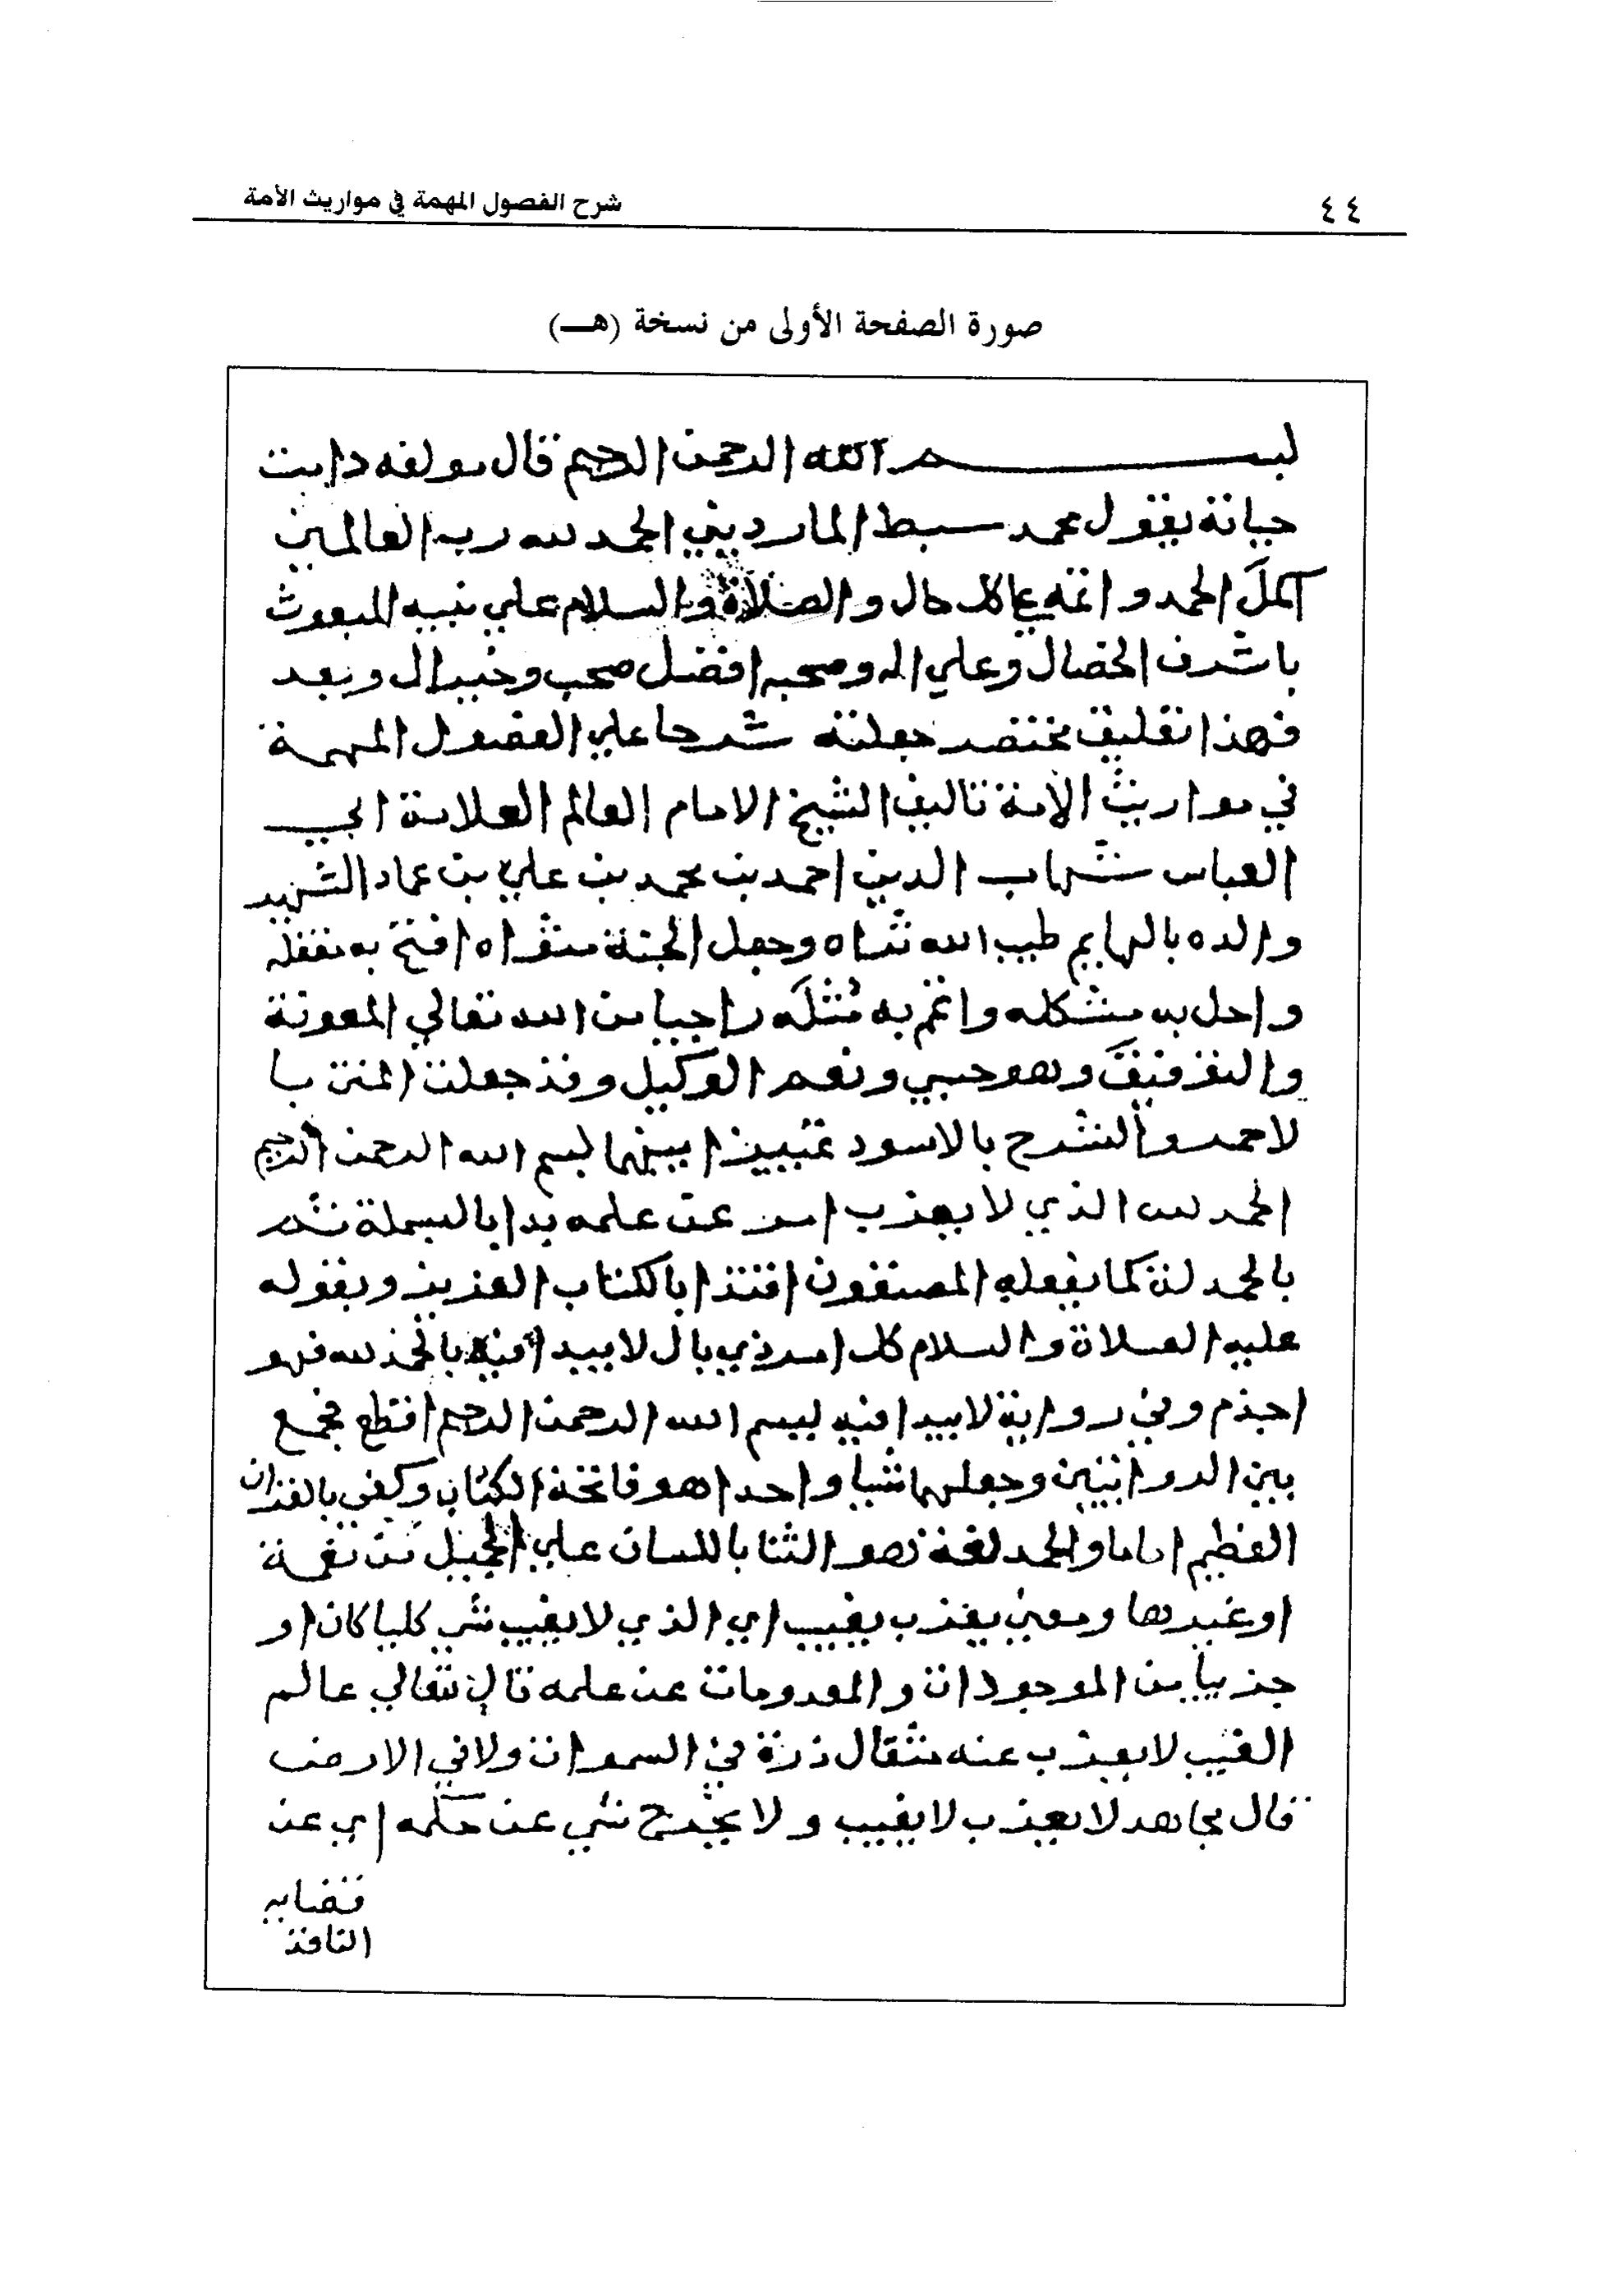 ٤٤
شرح الفصول المهمة في مواريث الأمة
صورة الصفحة الأولى من نسخة (هـ)
بسم الله الرحمن الرحيم قال مولفه دامت
حياته يقول محمد سبط المارديني الحمد لله رب العالمين
اكمل الحمد واتمه علي كل حال والصلاة والسلام علي نبيه المبعوث
باشرف الخصال وعلي اله وصحبه افضل صحب وخير ال وبعد
فهذا تعليق مختصر جعلته شرحا علي الفصول المهمة
في مواريث الامة تاليف الشيخ الامام العالم العلامة ابي
العباس شهاب الدين احمد بن محمد بن علي بن عماد الشهير
والده بالهايم طيب الله ثراه وجعل الجنة متقراه افتح به مقفله
واحل به مشكله واتمم به مُثله راجيا من الله تعالي المعونة
والتوفيق وهو حسبي ونعم الوكيل وقد جعلت المتن با
لاحمر والشرح بالاسود تمييزا بينهما بسم الله الرحمن الرحيم
الحمد لله الذي لا يعزب امر عن علمه بدا بالبسملة ثم
بالحمد لة كما يفعله المصنفون اقتدا بالكتاب العزيز وبقوله
عليه الصلاة والسلام كل امر ذي بال لا يبدا فيه بالحمد لله فهو
اجذم وفي رواية لا يبدا فيه ببسم الله الرحمن الرحيم اقطع فجمع
بين الروايتين وجعلهما شيا واحدا هو فاتحة الكتاب وكفي بالقران
العظيم اماما والحمد لغة هو الثنا باللسان علي الجميل من نعمة
او غيرها ومعني يعزب يغيب اي الذي لا يغيب شي كليا كان او
جزييا من الموجودات والمعدومات عن علمه قال تعالي عالم
الغيب لا يعزب عنه مثقال ذرة في السموات ولا في الارض
قال مجاهد لا يعزب لا يغيب ولا يخرج شي عن حكمه اي عن
قضايه
النافذ